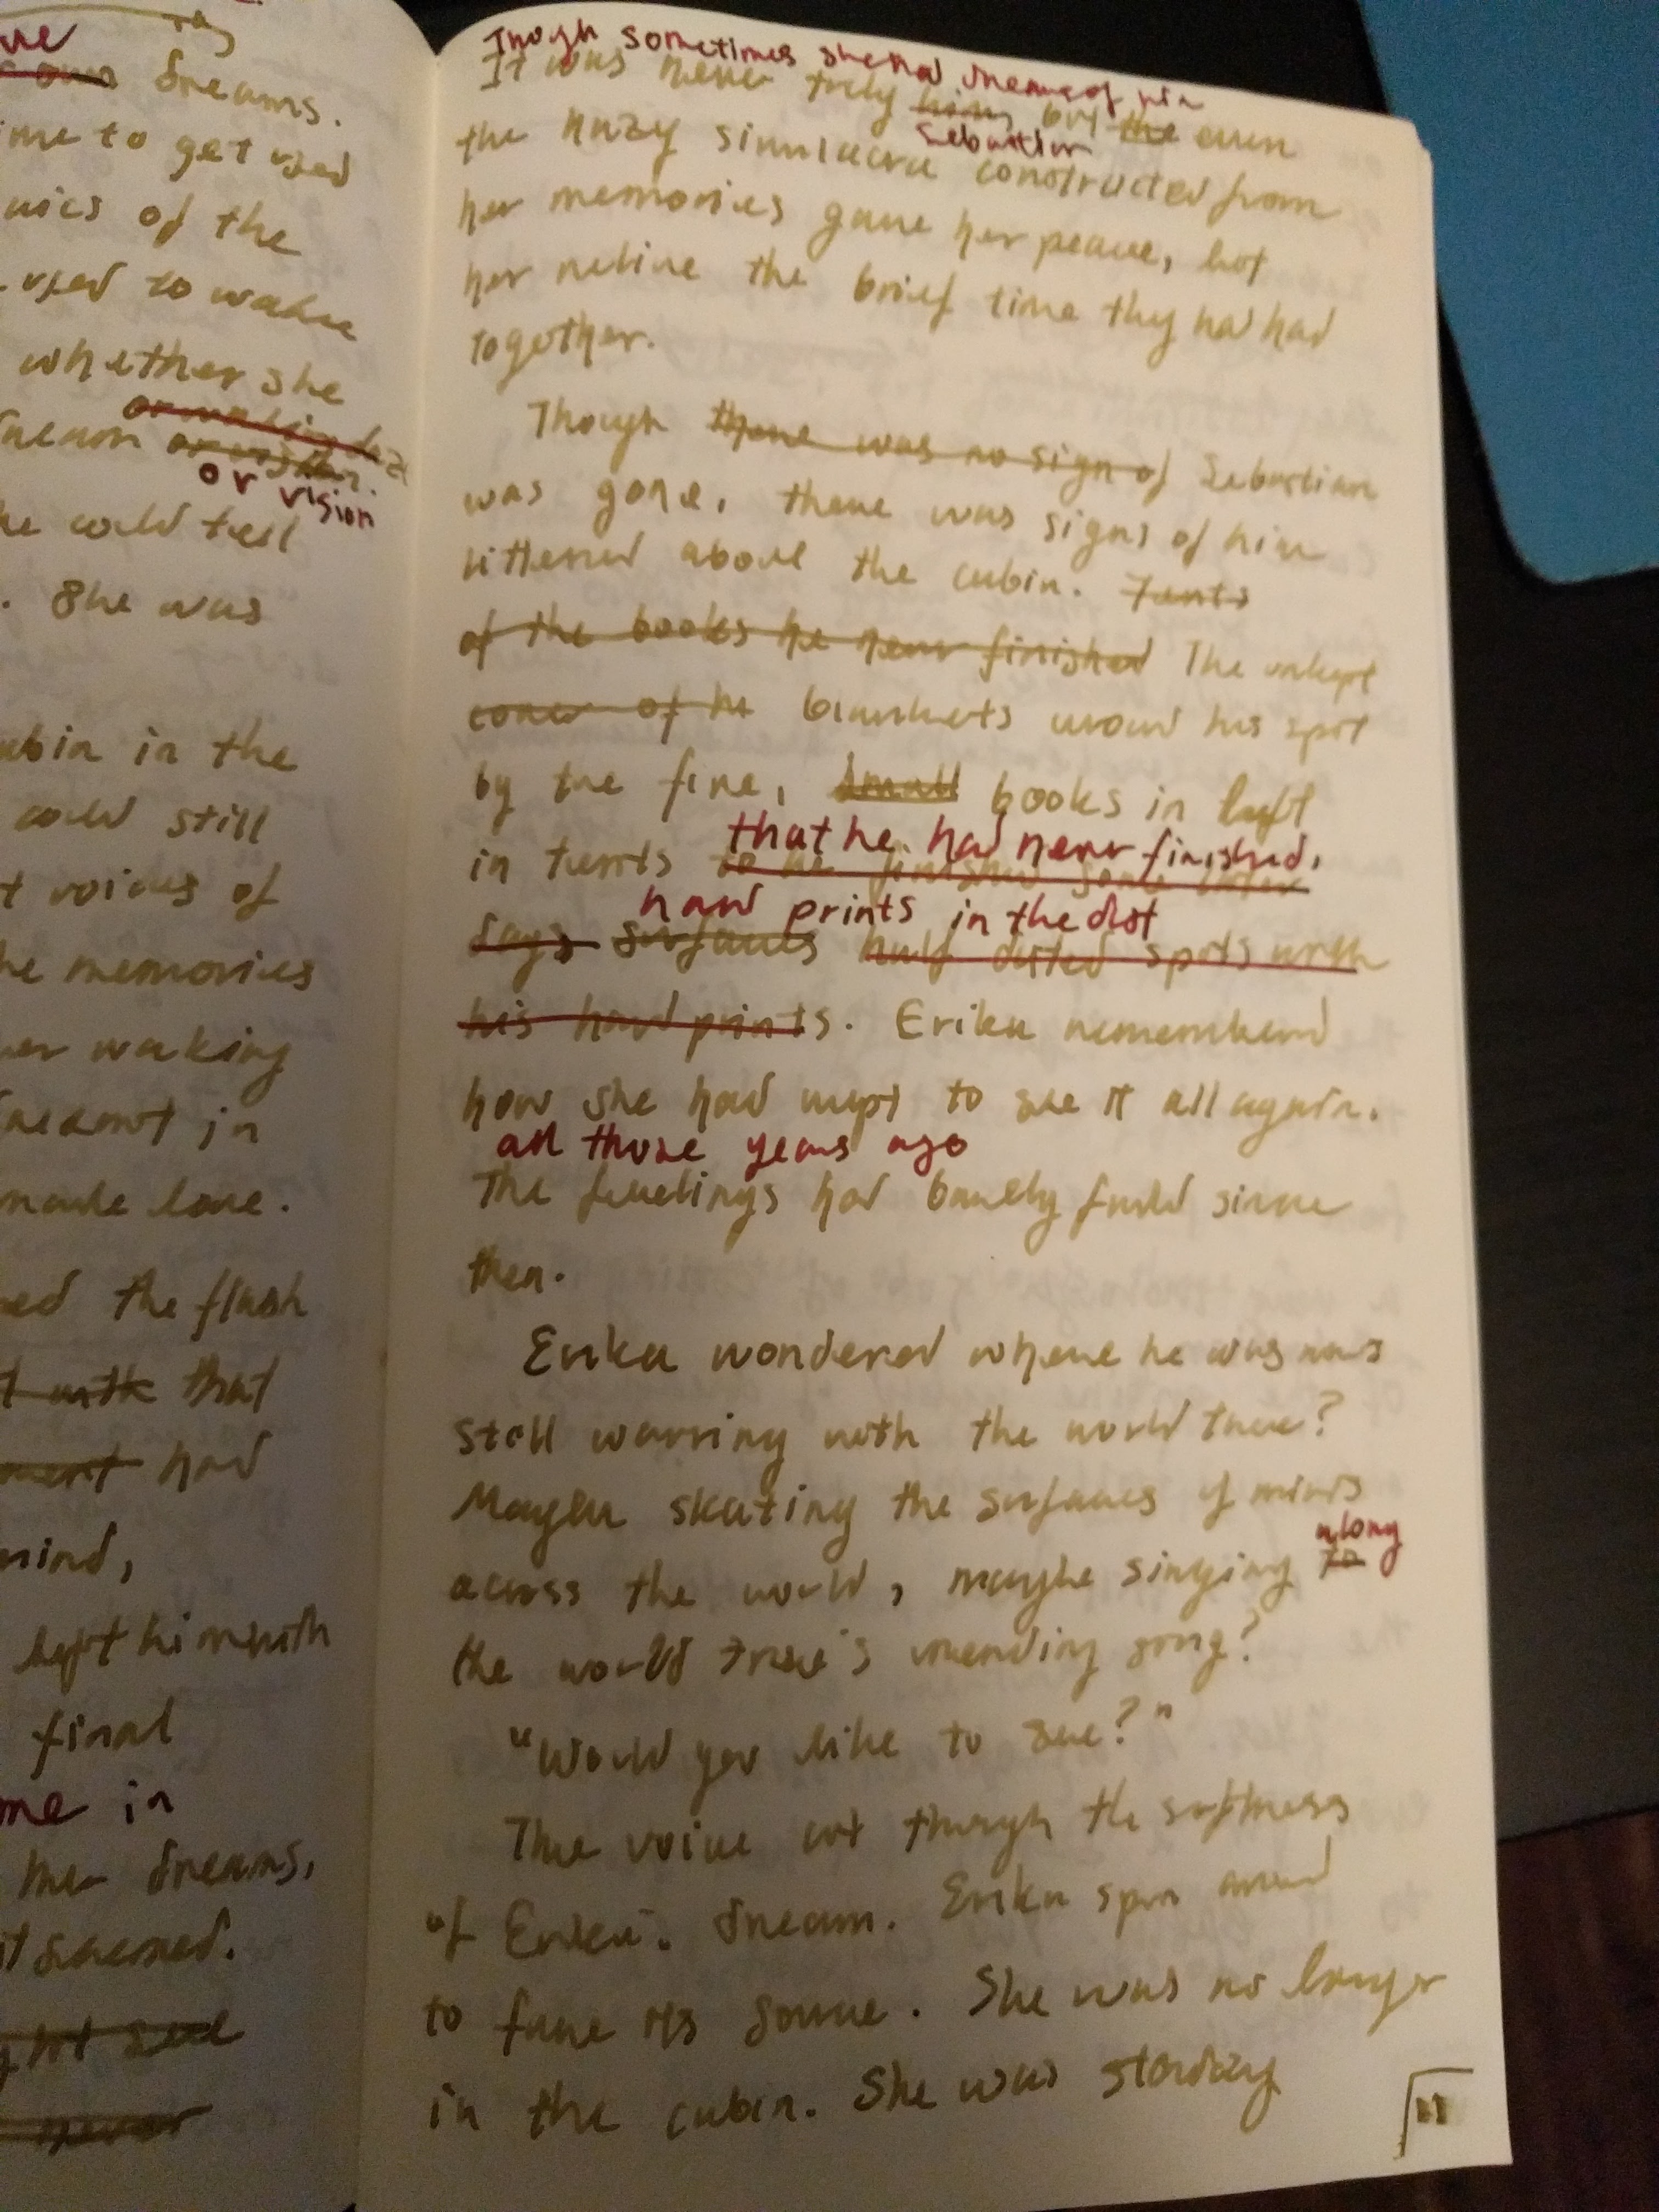 dreams.
me to get used
mics of the
used to wake
whether she
dream
or vision
he could tell
. She was
cabin in the
could still
t voices of
he memories
her waking
dreamt in
made love.
ed the flash
t with that
ment had
mind,
left him with
final
me in
her dreams,
it seemed.
never
Though sometimes she had dreams of him
It was never truly him, but the even
Sebastian
the hazy simulacra constructed from
her memories gave her peace, let
her relive the brief time they had had
together.
Though there was no sign of Sebastian
was gone, there was signs of him
littered about the cabin. Tents
of the books he never finished The unkept
cover of he blankets around his spot
by the fire, small books in left
that he had never finished,
in tents to be finished some other
hand prints in the dust
days surfaces half dusted spots with
his hand prints. Erika remembered
how she had wept to see it all again.
all those years ago
The feelings had barely faded since
then.
Erika wondered where he was now
Still warring with the world tree?
Maybe skating the surfaces of minds
along
across the world, maybe singing to
the world tree's unending song?
"Would you like to see?"
The voice cut through the softness
of Erika's dream. Erika spun around
to face its source. She was no longer
in the cabin. She was standing